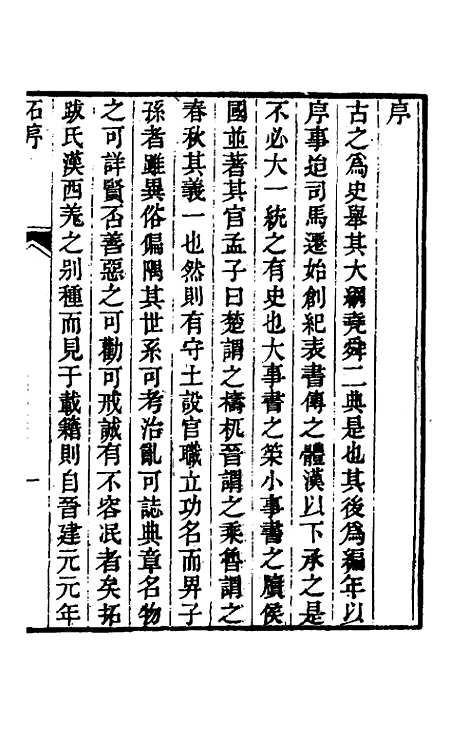 序
古之爲史舉其大綱堯舜二典是也其後爲編年以
序事迨司馬遷始創紀表書傳之體漢以下承之是
不必大一統之有史也大事書之策小事書之牘侯
國並著其官孟子曰楚謂之檮杌晉謂之乘魯謂之
春秋其義一也然則有守土設官職立功名而畀子
孫者雖異俗偏隅其世系可考治亂可誌典章名物
之可詳賢否善惡之可勸可戒誠有不容泯者矣拓
跋氏漢西羌之别種而見于載籍則自晉建元元年
石序
一